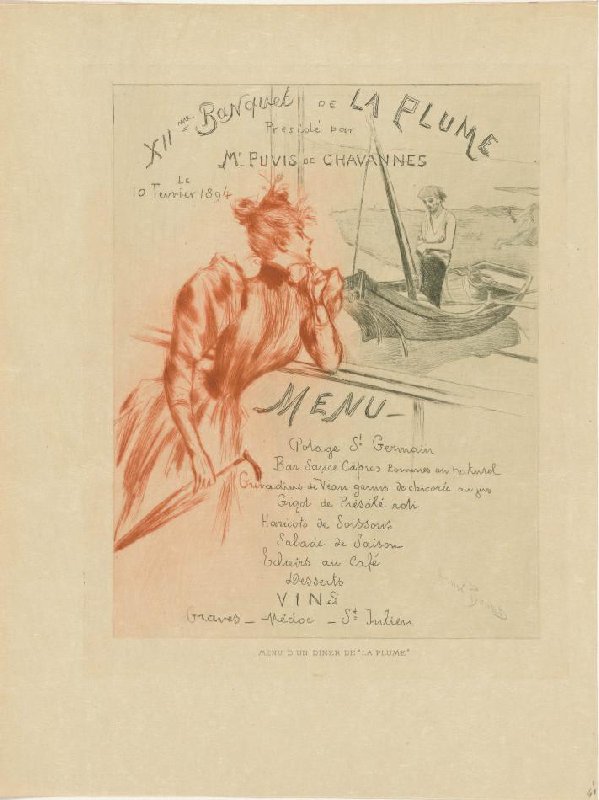 XIIme Banquet DE LA PLUME
Présidé par
Mr PUVIS DE CHAVANNES
Le
Fevrier 1894
MENU
Potage St Germain
Bar Sauce Capres Pommes au naturel
de Veau garnis de chicorée au jus
Gigot de Présalé roti
Haricots de Soissons
Salade de Saison
Eclairs au Café
Desserts
VINS
Graves _ Médoc _ St Julien
MENU D'UN DINER DE "LA PLUME"